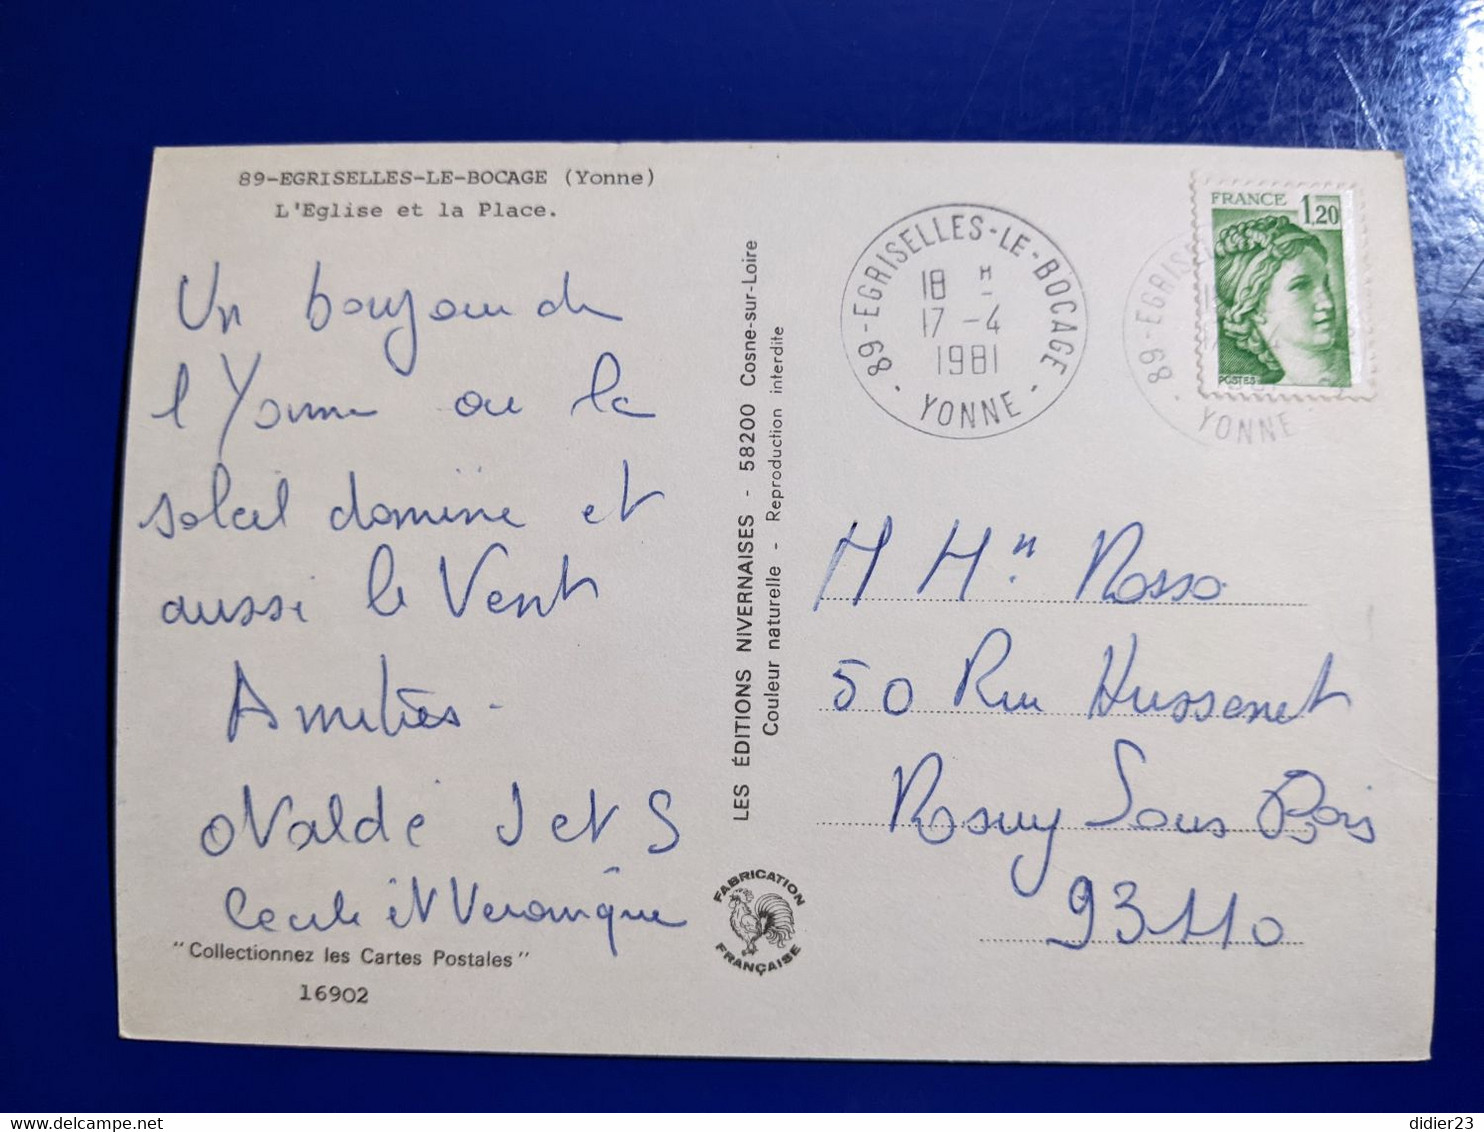 89-EGRISELLES-LE-BOCAGE (Yonne)
L'Eglise et la Place.
Un boujour de
l'Yonne ou la
soleil domine et
aussi le Vent
Amitiés-
Valdé J et S
Cecile et Veronique
"Collectionnez les Cartes Postales"
16902
LES ÉDITIONS NIVERNAISES - 58200 Cosne-sur-Loire
Couleur naturelle - Reproduction interdite
FABRICATION
FRANÇAISE
89-EGRISELLES-LE-BOCAGE
18 H
17 -4
1981
YONNE
FRANCE 1,20
POSTES
89-EGRIS
YONNE
M Mn Rosso
50 Rue Hussenet
Rosny Sous Bois
93110
didier23